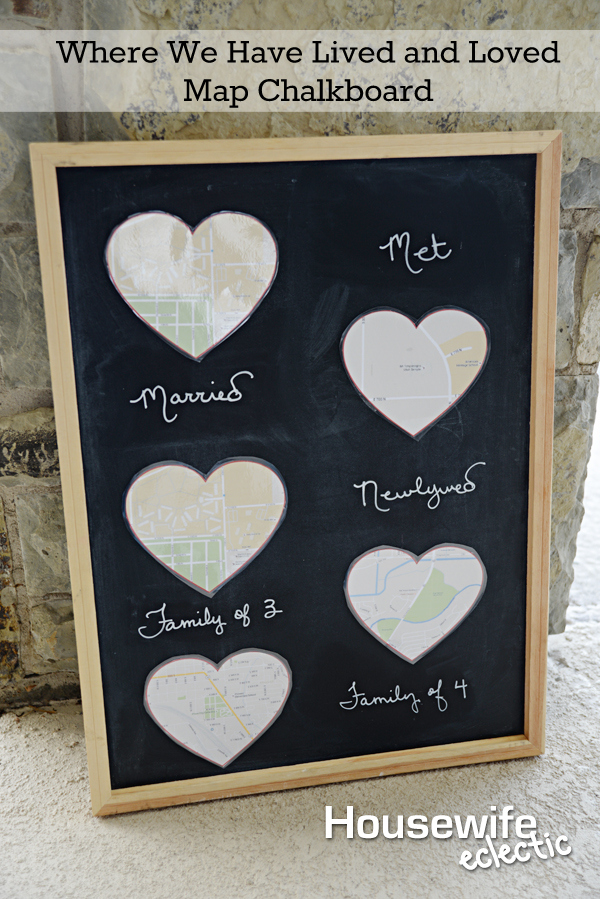 Where We Have Lived and Loved
Map Chalkboard
Met
Married
Newlywed
Family of 3
Family of 4
Housewife
eclectic